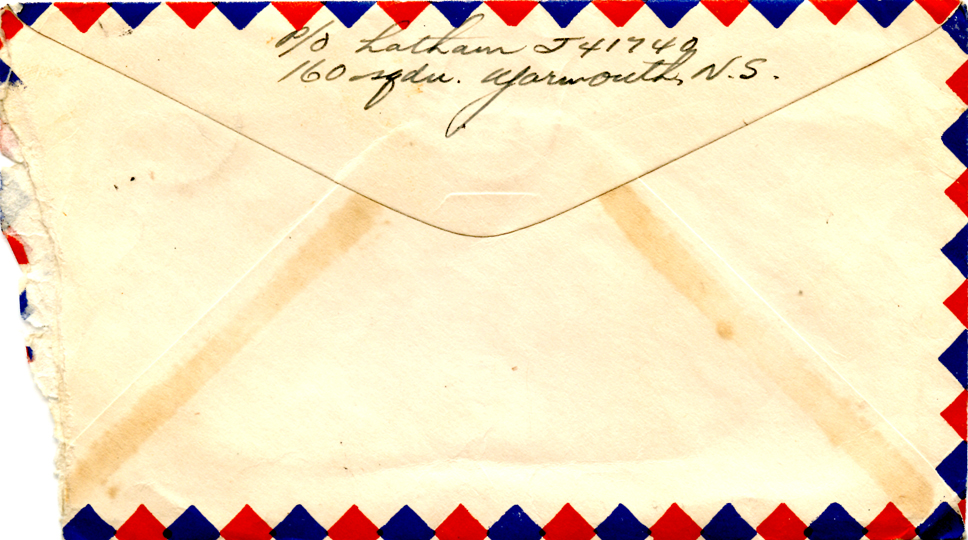 P/O Latham J 41740
160 sqdn. Yarmouth, N.S.